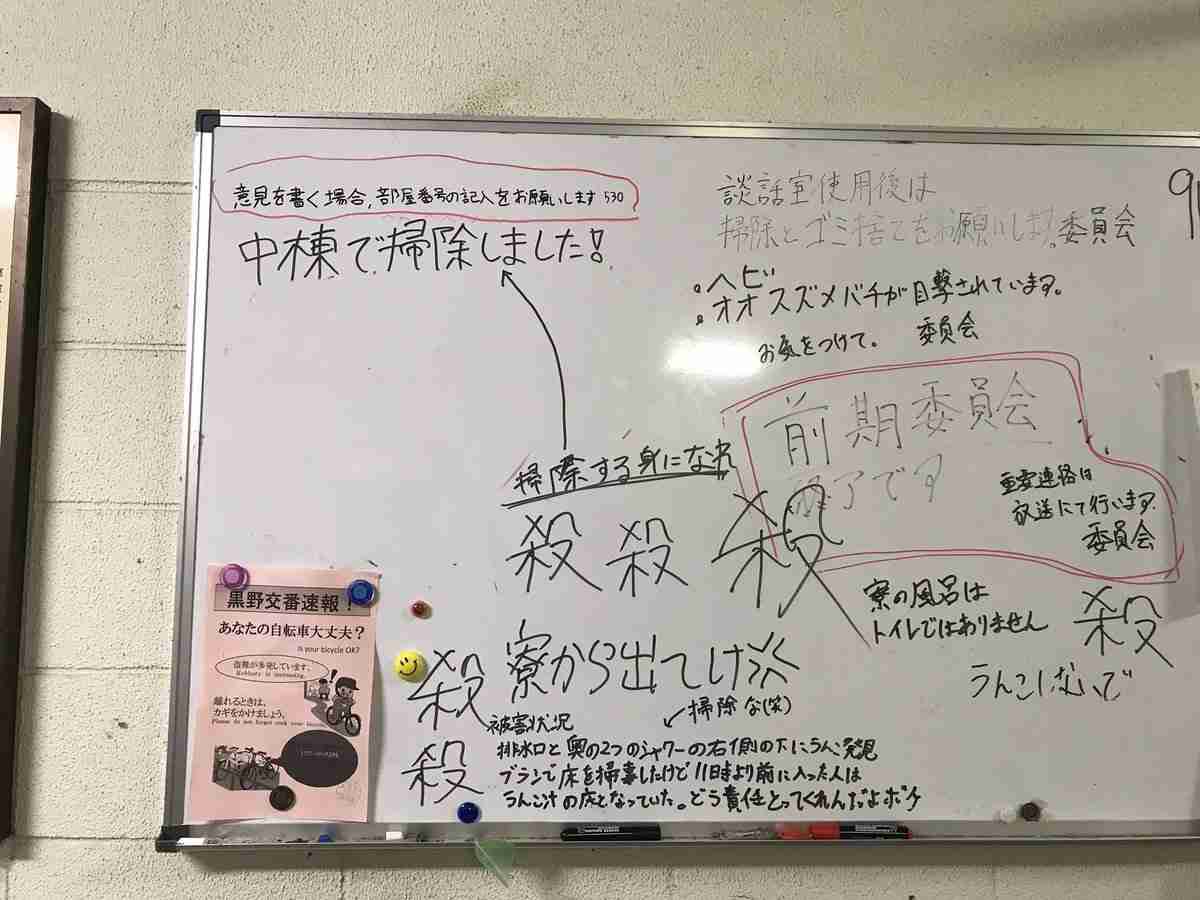 意見を書く場合,部屋番号の記入をお願いします 530
中棟で掃除しました!
談話室使用後は
掃除とゴミ捨てをお願いします。委員会
・ヘビ
・オオスズメバチが目撃されています。
お気をつけて。 委員会
前期委員会
終了です
重要連絡は
放送にて行います。
委員会
掃除する身になれ
殺 殺 殺
寮の風呂は
トイレではありません
殺
うんこしないで
殺
寮から出てけ
殺
被害状況
掃除な(笑)
排水口と奥の2つのシャワーの右側の下にうんこ発見
ブラシで床を掃毒したけど11日時より前に入った人は
うんこ汁の床となっていた。どう責任とってくれんだよボケ
黒野交番速報!
あなたの自転車大丈夫?
Is your bicycle OK?
盗難が多発しています。
Robbery is increasing.
離れるときは、
カギをかけましょう。
Please do not forget